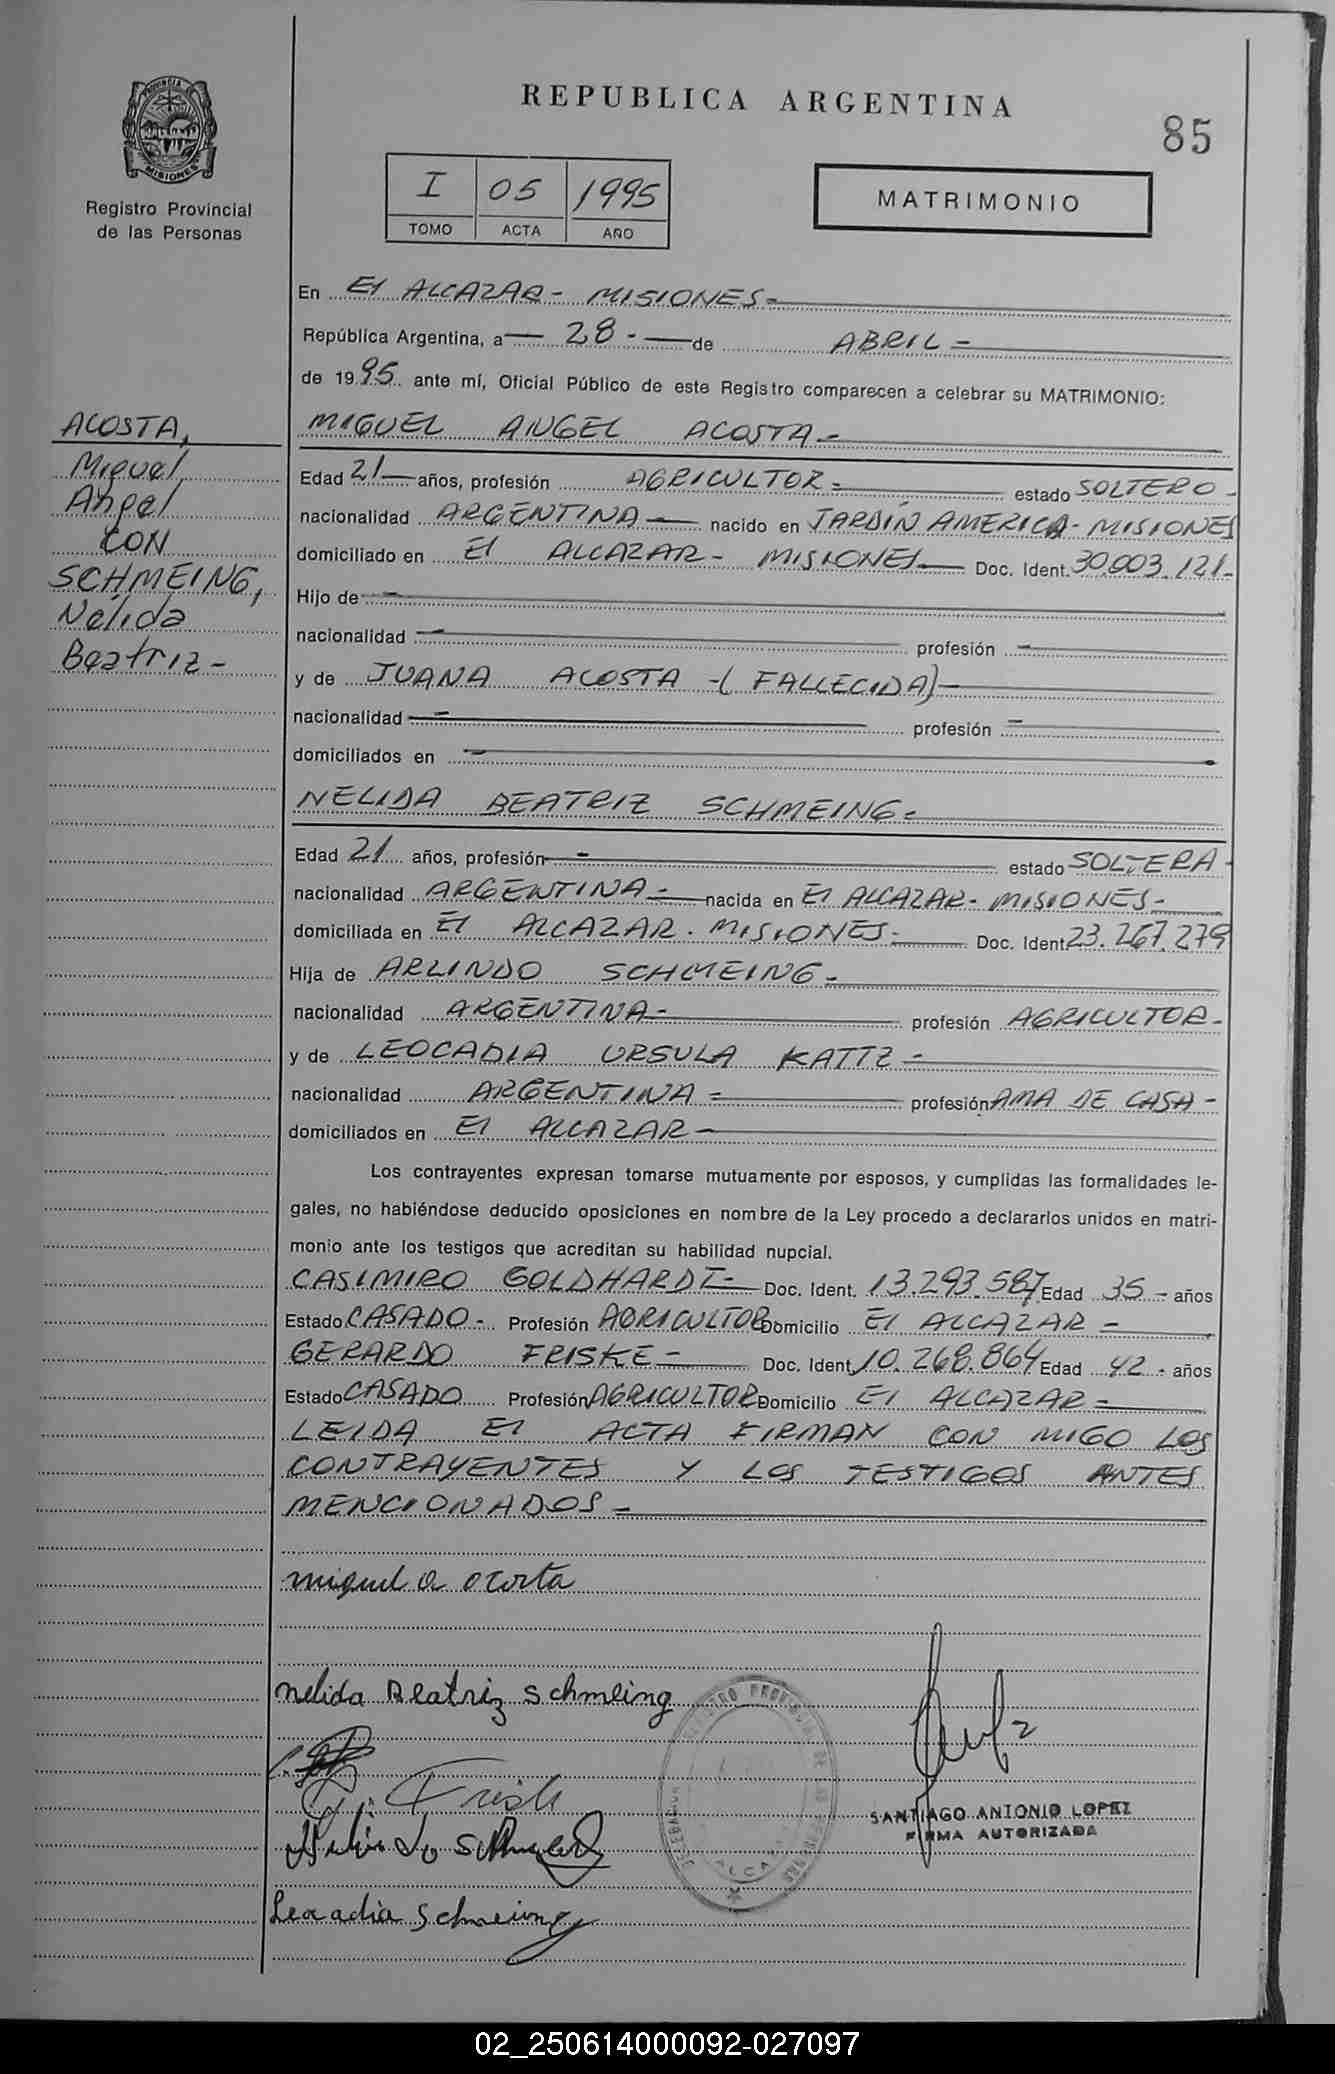 PROVINCIA DE
MISIONES
Registro Provincial
de las Personas
REPUBLICA ARGENTINA
85
I 05 1995
TOMO ACTA AÑO
MATRIMONIO
En El ALCAZAR - MISIONES -
República Argentina, a — 28 - — de ABRIL -
de 1995 ante mí, Oficial Público de este Registro comparecen a celebrar su MATRIMONIO:
ACOSTA,
Miguel
Angel
CON
SCHMEING,
Nélida
Beatriz -
MIGUEL ANGEL ACOSTA -
Edad 21 — años, profesión AGRICULTOR - estado SOLTERO -
nacionalidad ARGENTINA — nacido en JARDÍN AMERICA - MISIONES
domiciliado en El ALCAZAR - MISIONES — Doc. Ident. 30.003.121 -
Hijo de -
nacionalidad - profesión -
y de JUANA ACOSTA - ( FALLECIDA) -
nacionalidad - profesión -
domiciliados en -
NELIDA BEATRIZ SCHMEING -
Edad 21 años, profesión - estado SOLTERA -
nacionalidad ARGENTINA - nacida en El ALCAZAR - MISIONES -
domiciliada en El ALCAZAR . MISIONES - Doc. Ident 23.267.279
Hija de ARLINDO SCHMEING -
nacionalidad ARGENTINA - profesión AGRICULTOR -
y de LEOCADIA URSULA KATTZ -
nacionalidad ARGENTINA - profesión AMA DE CASA -
domiciliados en El ALCAZAR -
Los contrayentes expresan tomarse mutuamente por esposos, y cumplidas las formalidades le-
gales, no habiéndose deducido oposiciones en nombre de la Ley procedo a declararlos unidos en matri-
monio ante los testigos que acreditan su habilidad nupcial.
CASIMIRO GOLDHARDT - Doc. Ident. 13.293.587 Edad 35 - años
Estado CASADO - Profesión AGRICULTOR Domicilio El ALCAZAR -
GERARDO FRISKE - Doc. Ident. 10.268.864 Edad 42 - años
Estado CASADO Profesión AGRICULTOR Domicilio El ALCAZAR -
LEIDA El ACTA FIRMAN CON MIGO LOS
CONTRAYENTES Y LOS TESTIGOS ANTES
MENCIONADOS -
miguel a acosta
Nelida Beatriz Schmeing
Leocadia Schmeing
SANTIAGO ANTONIO LOPEZ
FIRMA AUTORIZADA
02_250614000092-027097